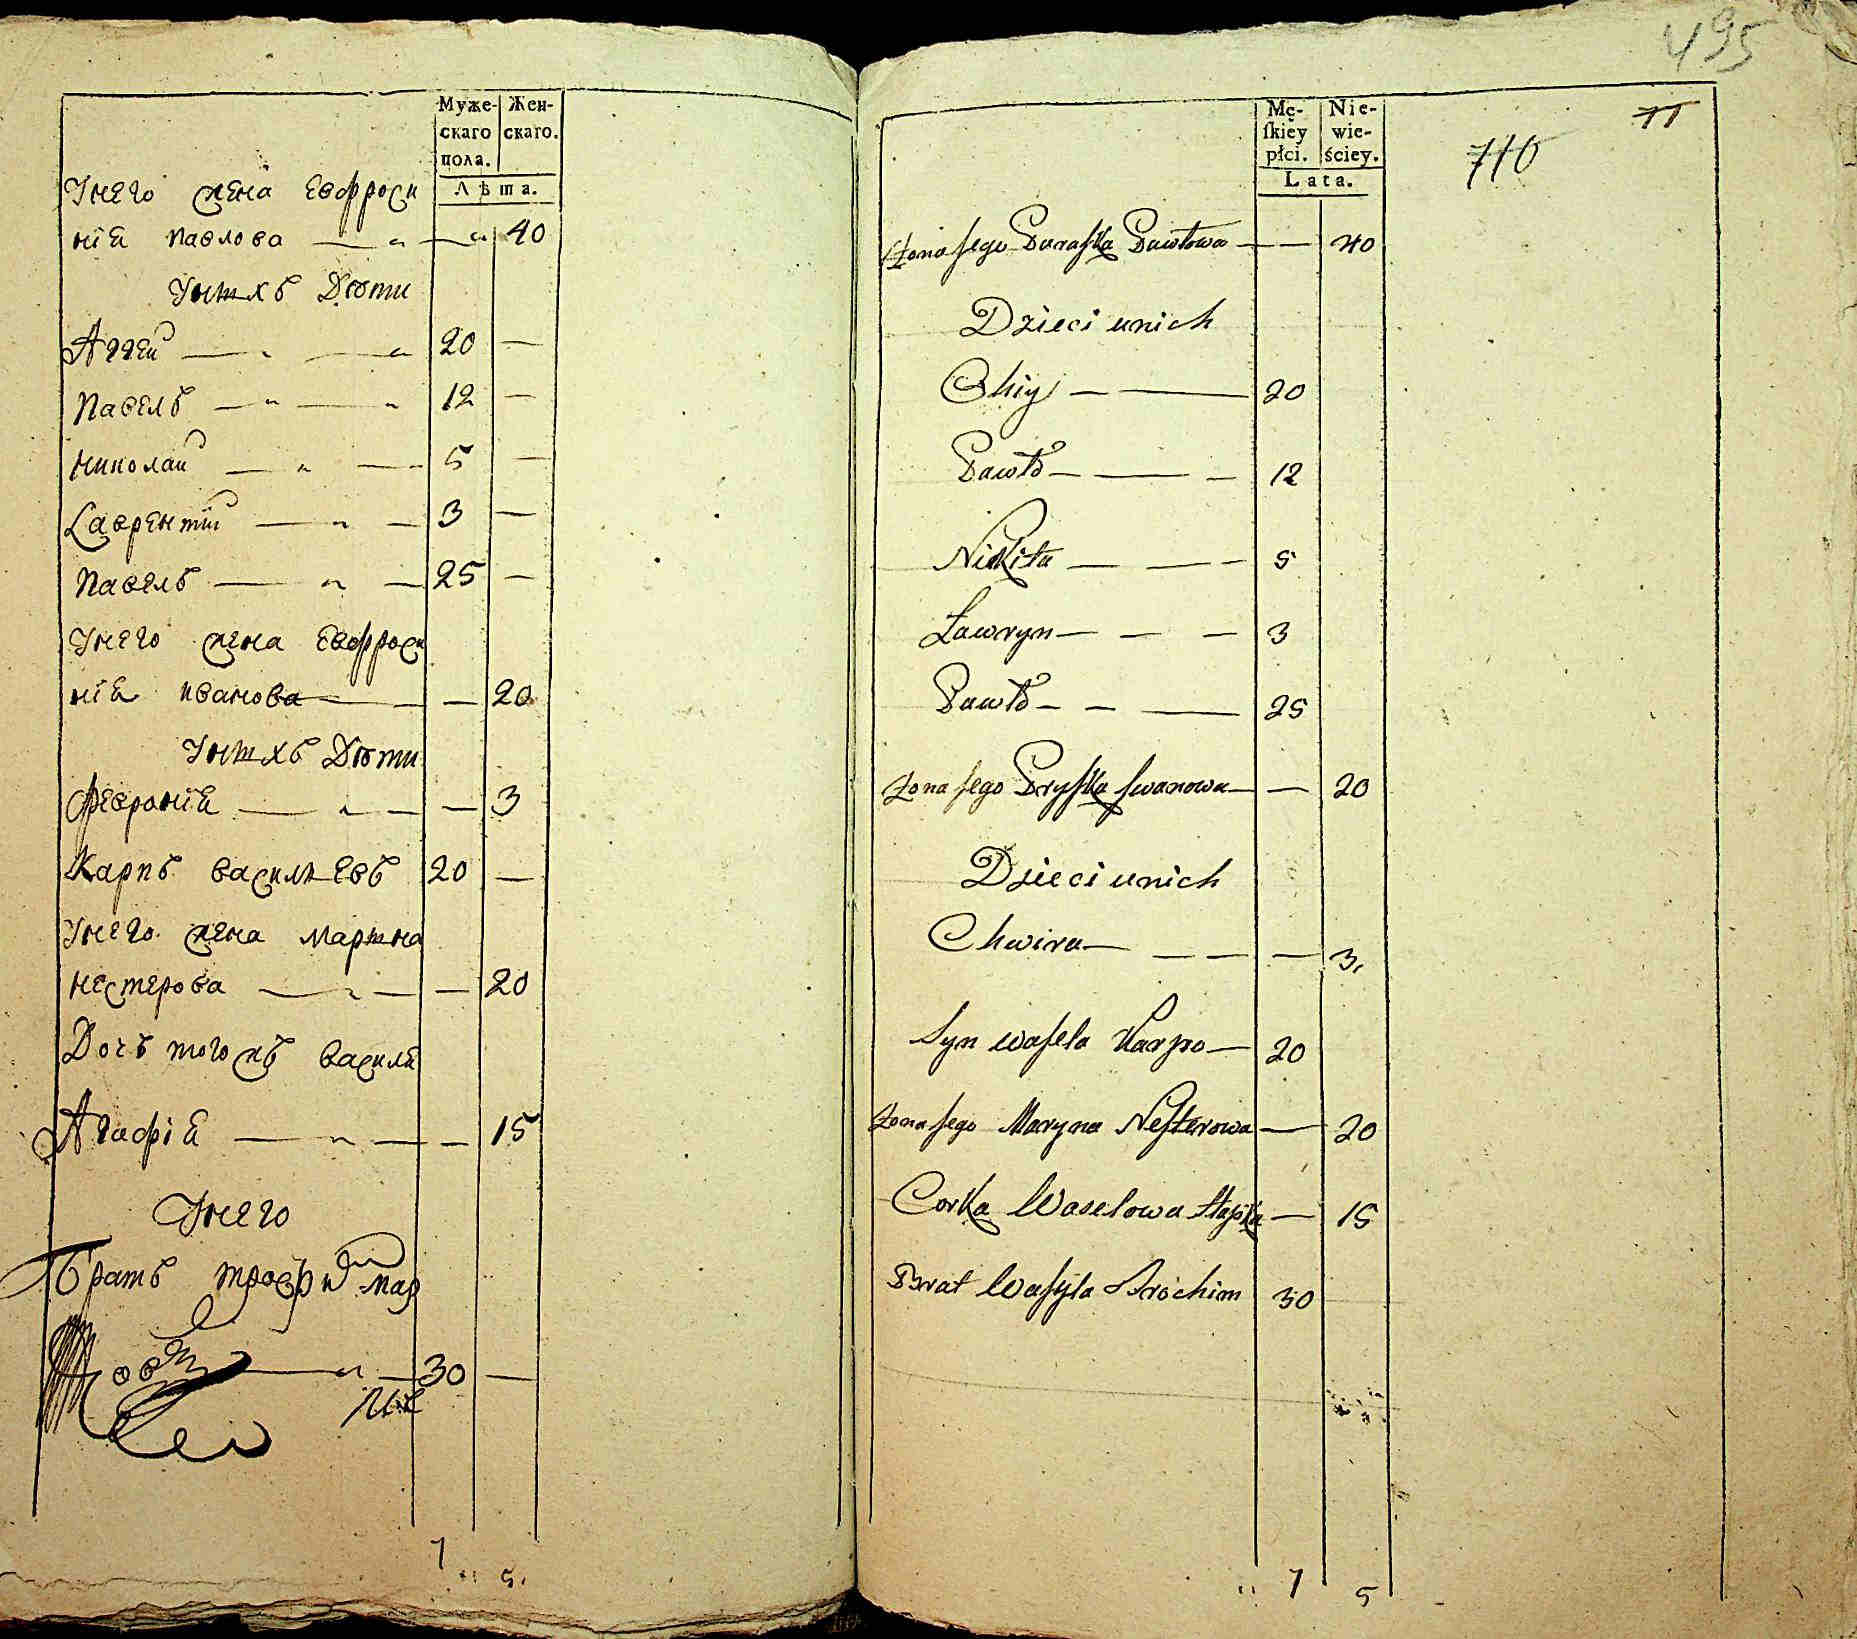 Муже-
скаго
пола.
Жен-
скаго.
Лѣта.
Унего жена Евфроси
нїя павлова — — 40
Унихъ Дѣти
Аггей — — 20 —
Павелъ — — 12 —
Николай — — 5 —
Лаврентїй — — 3 —
Павелъ — — 25 —
Унего жена Евфроси
нїя иванова — — 20
Унихъ Дѣти
Февронїя — — 3
Карпъ васильевъ 20 —
Унего жена Марина
нестерова — — 20
Дочь того жъ василя
Агафїя — — 15
Унего
Братъ трофим мар
30 —
7 5
495
11
710
Mę-
ſkiey
płci.
Nie-
wie-
ściey.
Lata.
Żona Jego Paraſka Pawłowa — — 40
Dzieci unich
Ohiy — — 20
Pawło — — 12
Nikita — — 5
Ławryn — — 3
Pawło — — 25
Żona Jego Pryſka Jwanowa — — 20
Dzieci unich
Chwira — — 3
Syn waſela Karpo — 20
Żona Jego Maryna Neſterowa — 20
Corka Waselowa Hapka — 15
Brat Waſyla Trochim 30
7 5